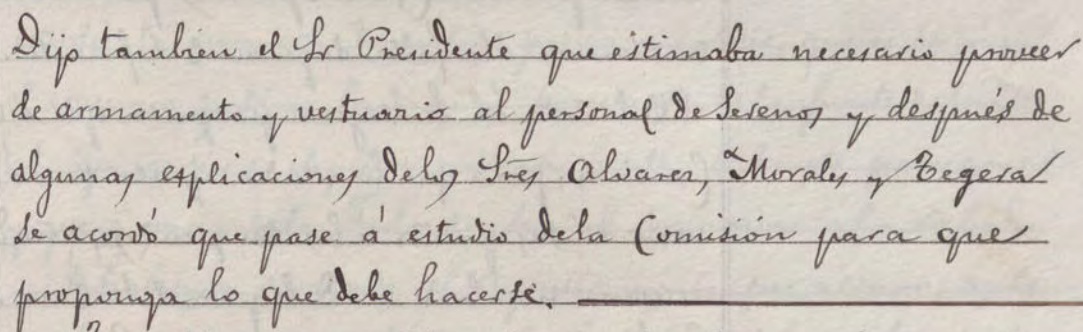 Dijo tambien el Sr Presidente que estimaba necesario proveer
de armamento y vestuario al personal de Serenos y después de
algunas explicaciones delos Sres Alvarez, Morales y Tegera
se acordó que pase á estudio dela Comisión para que
proponga lo que debe hacerse.